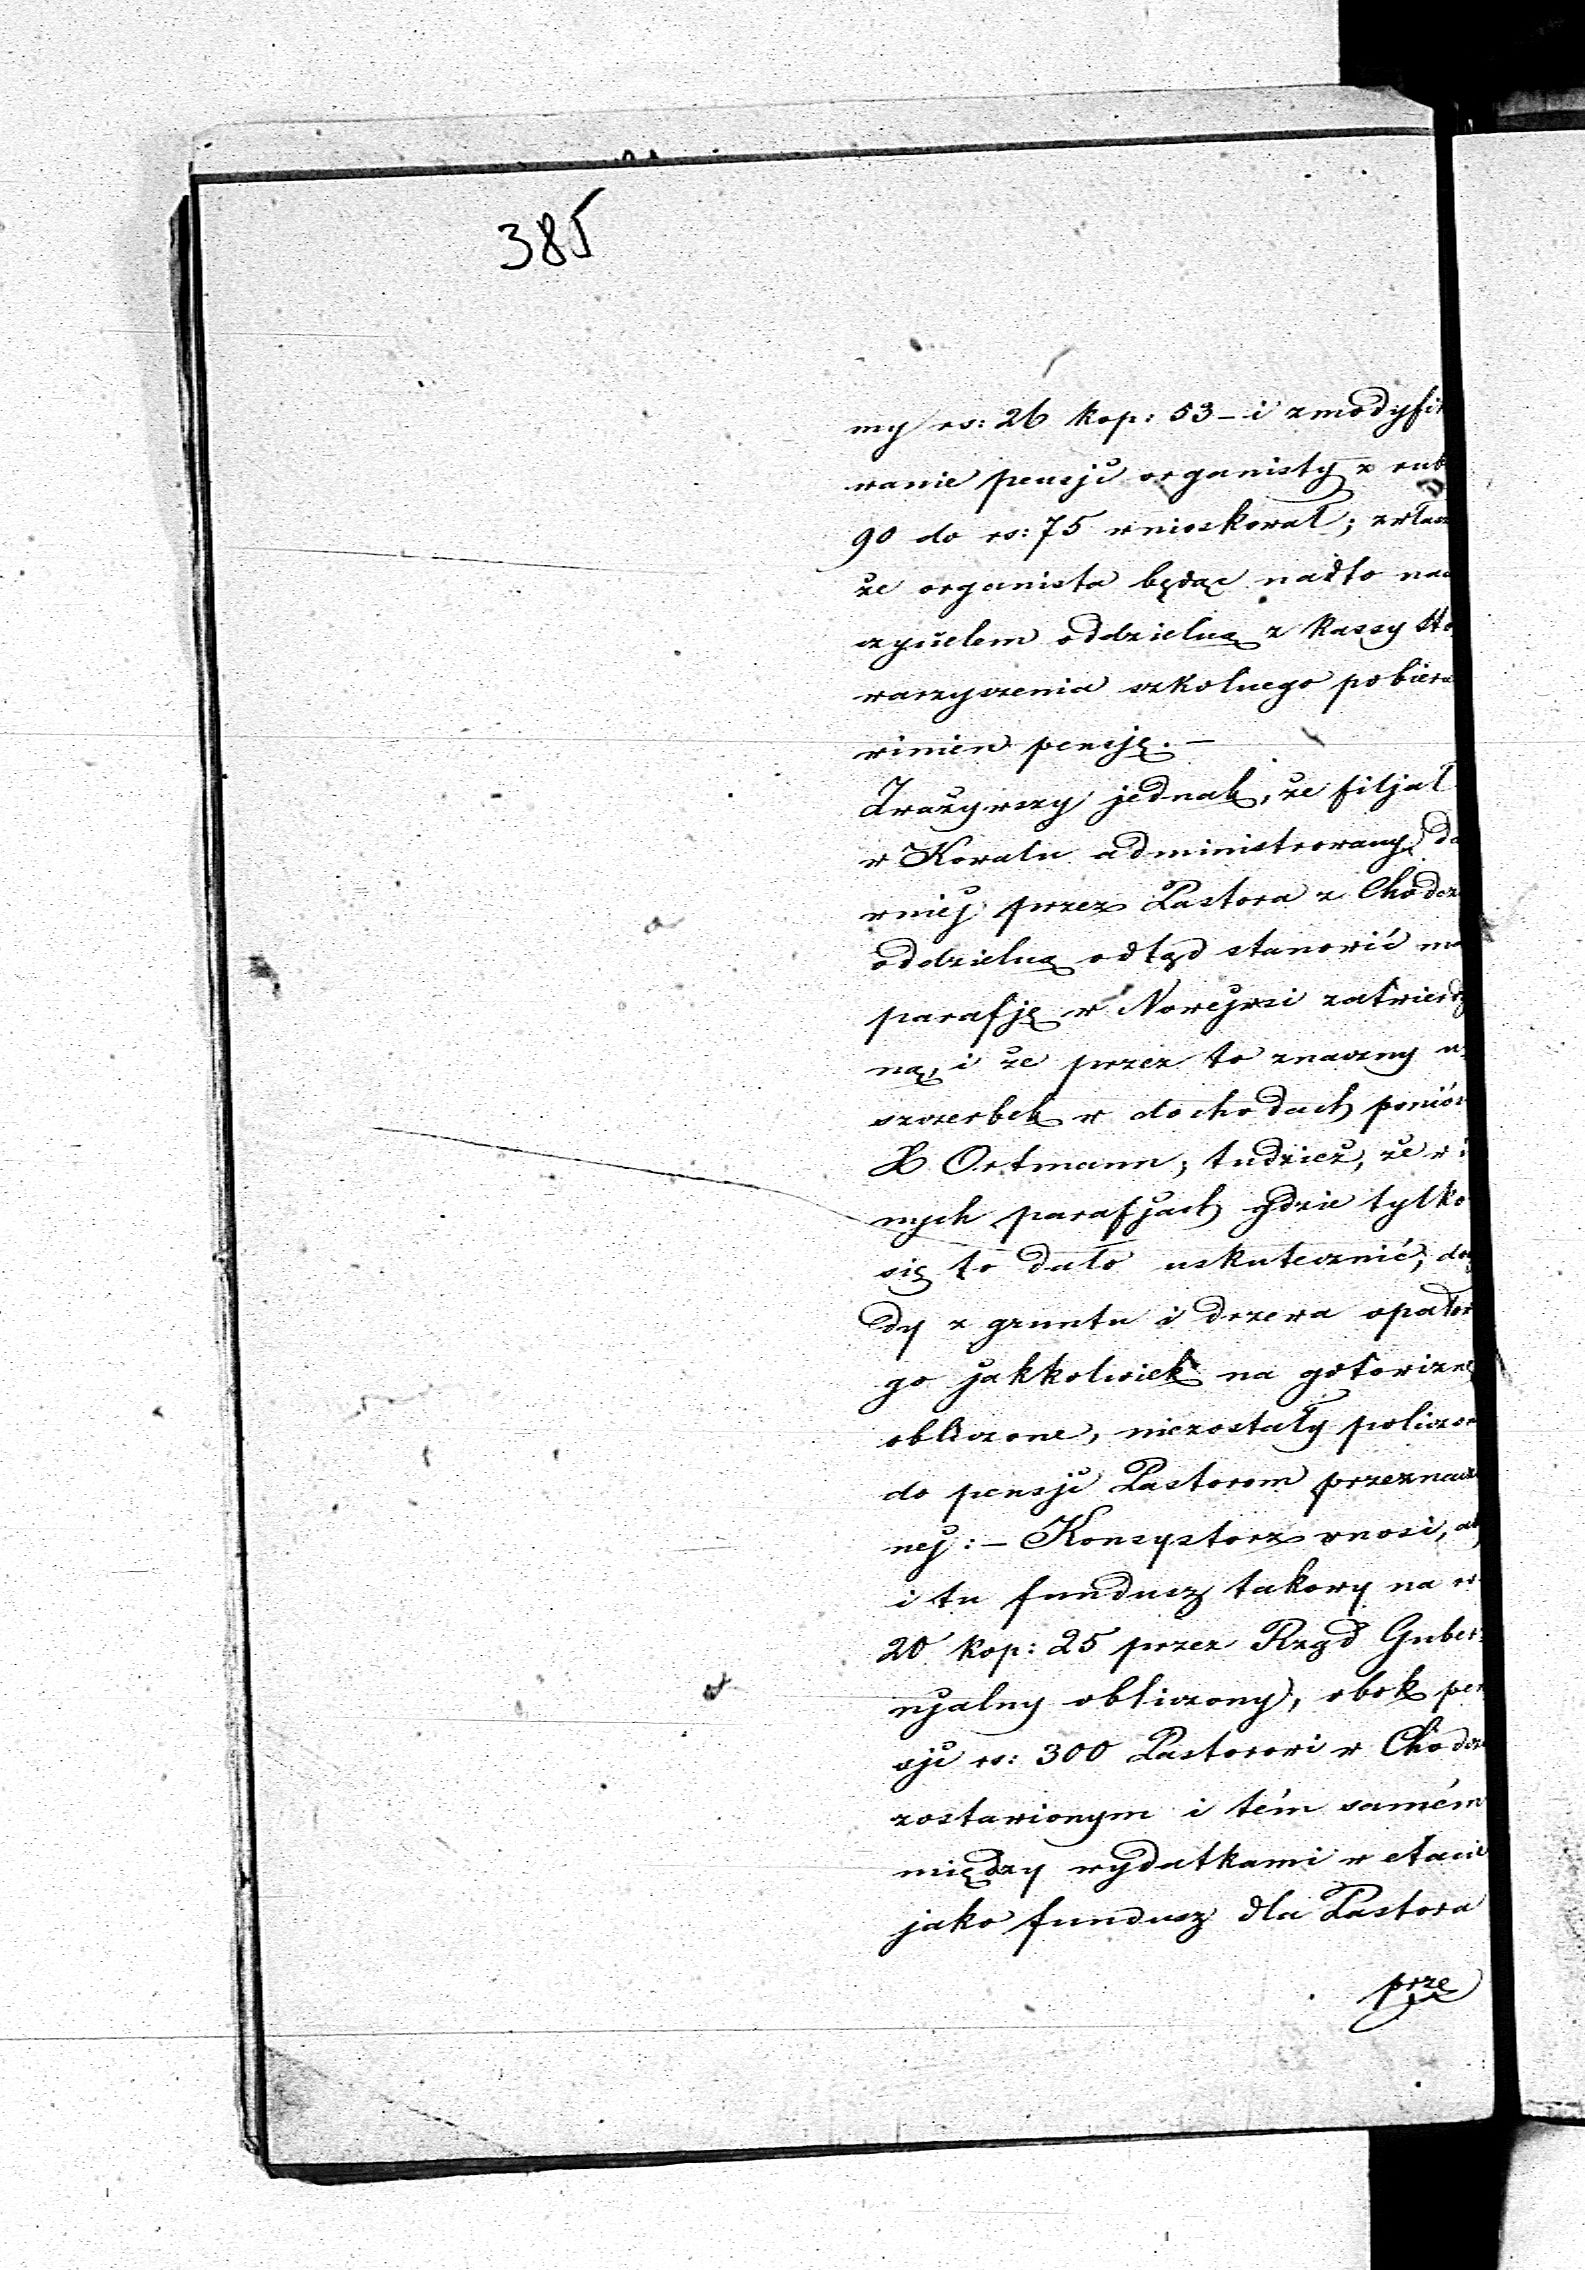 385
my rs: 26 kop: 53 – i zmodyfik
wanie pensji organisty z rub
90 do rs: 75 wnioskował; zwłasz
że organista będąc nadto nau
czycielem oddzielną z Kassy Sto
warzyszenia szkolnego pobiera
winien pensję. –
Zważywszy jednak, że filjał
w Kowalu administrowany da
wniej przez Pastora z Chodcz
oddzielną odtąd stanowić ma
parafję w Nowejwsi zatwierdzo
ną, i że przez to znaczny u
szczerbek w dochodach poniós
X Ortmann; tudzież, że w i
nych parafjach gdzie tylko
się to dało uskutecznić, do
dy z gruntu i drzewa opałow
go jakkolwiek na gotowiznę
obliczone, niezostały policzo
do pensji Pastorom przeznacz
nej: – Konsystorz wnosi, ab
i tu fundusz takowy na rs
20 kop: 25 przez Rząd Guber
njalny obliczony, obok pen
sji rs: 300 Pastorowi w Chodcz
zostawionym i tém samém
między wydatkami w etacie
jako fundusz dla Pastora
prze